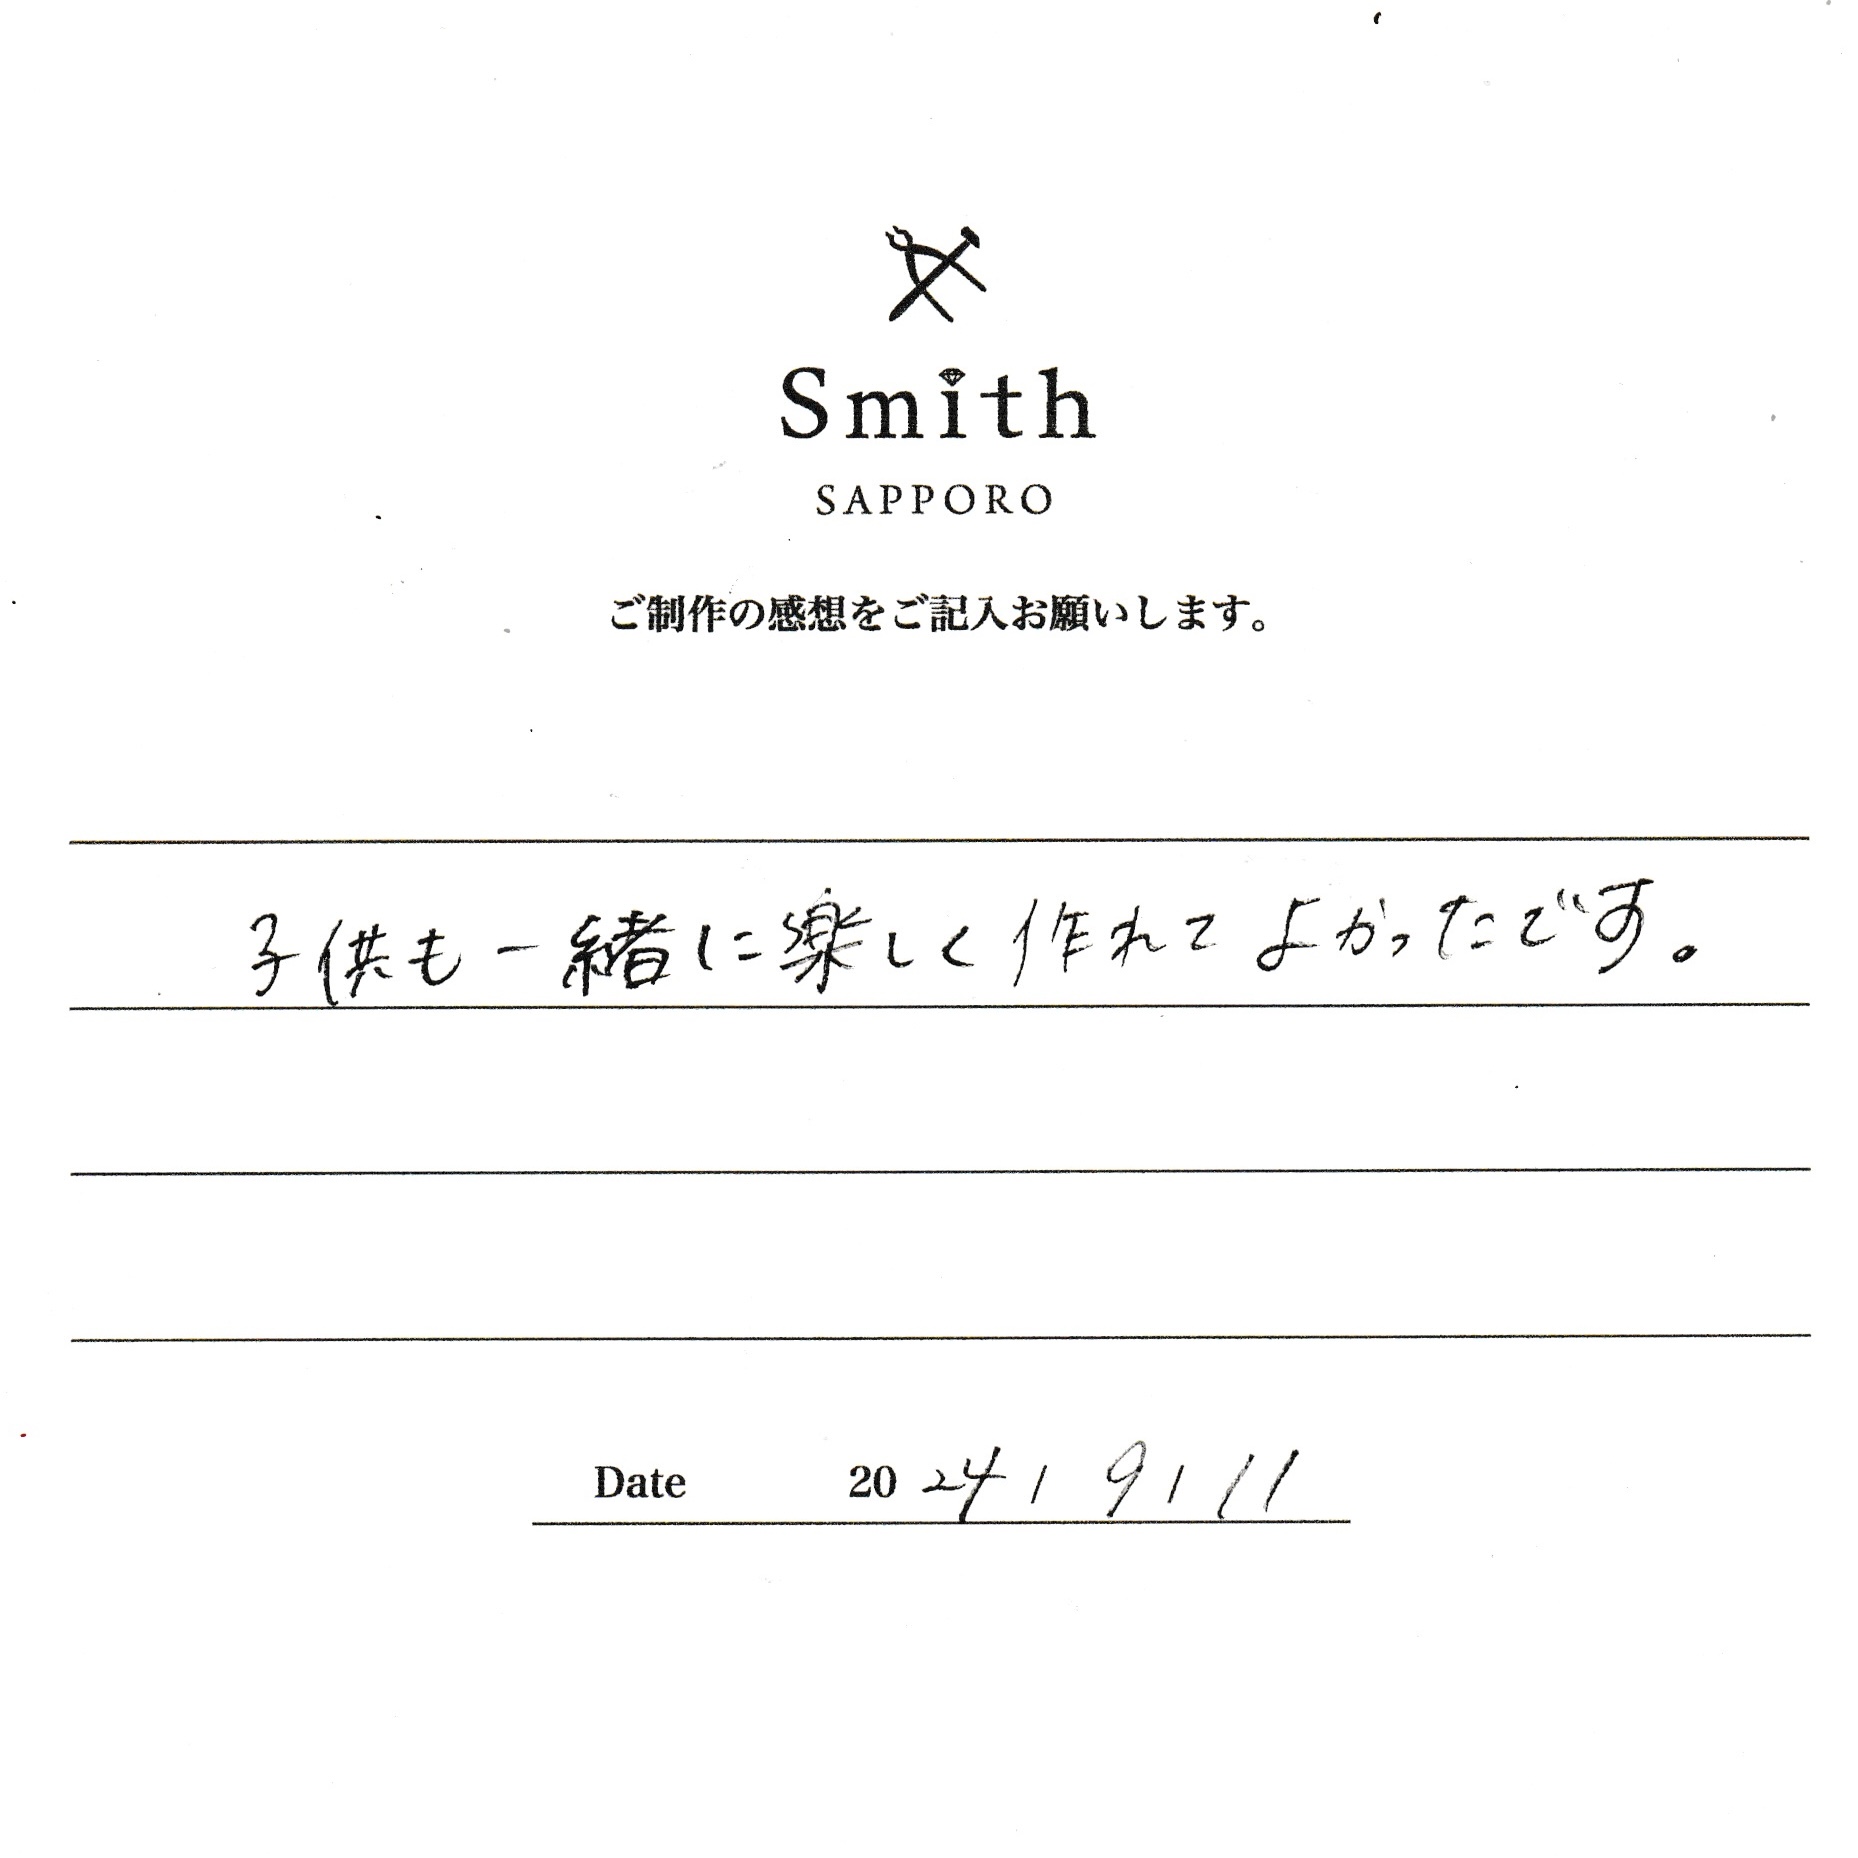 Smith
SAPPORO
ご制作の感想をご記入お願いします。
子供も一緒に楽しく作れてよかったです。
Date 2024 / 9 / 11